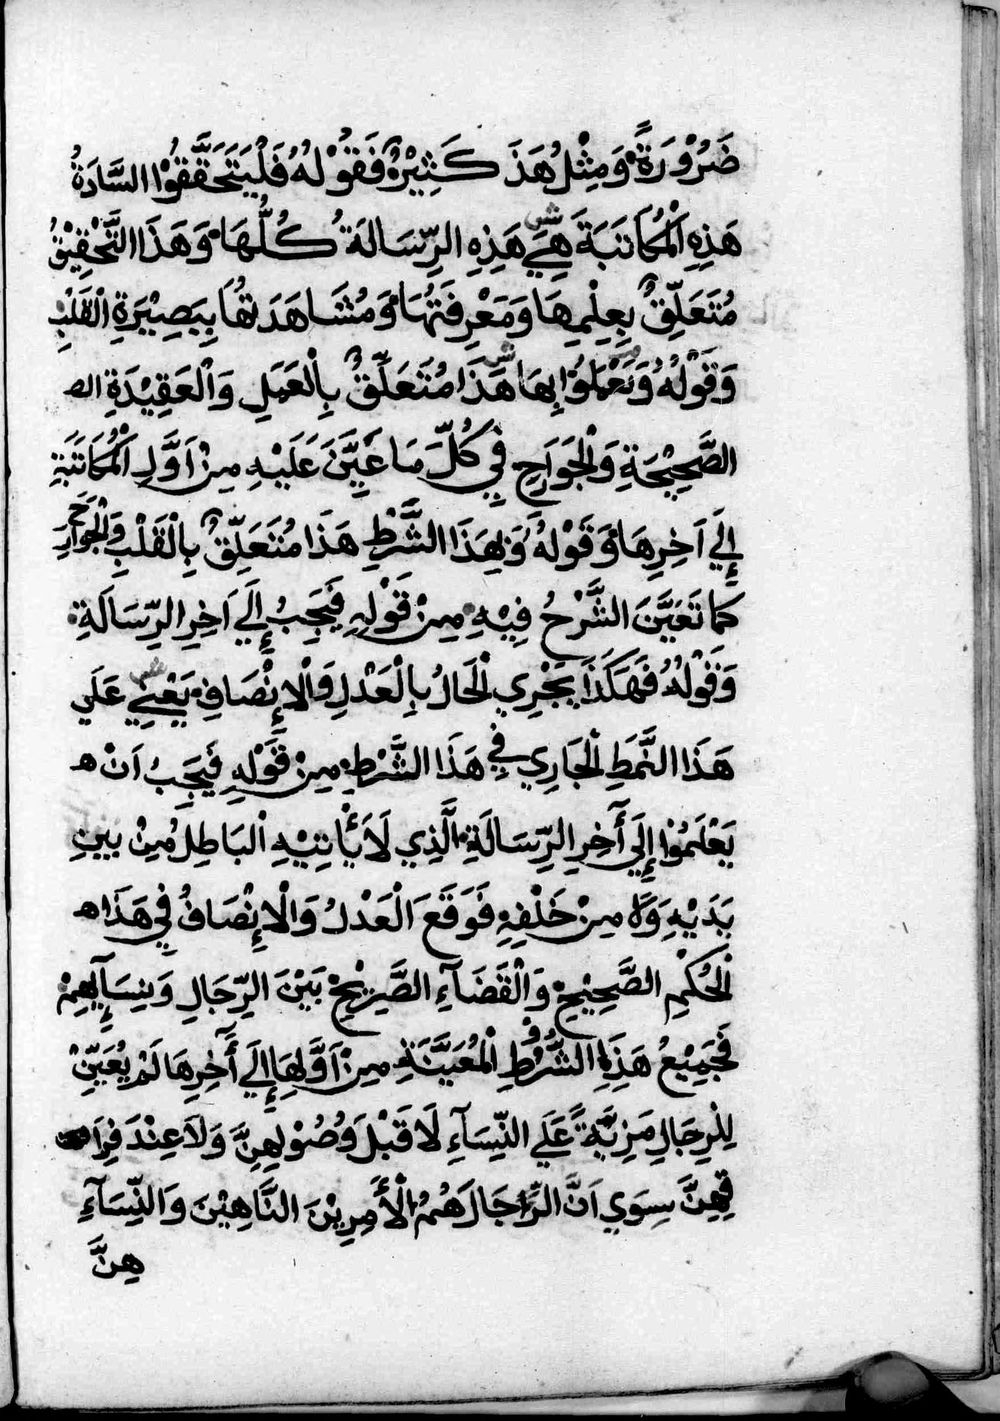 ضَرُوْرَةً وَمِثْلُ هَذَ كَثِيْرٌ فَقَوْلُهُ فَلْيَتَحَقَّقُوْا السَّادَةُ
هَذِهِ الْمُكَاتَبَةَ هِيَ هَذِهِ الرِّسَالَةُ كُلُّهَا وَهَذَا التَّحْقِيْقُ
مُتَعَلِّقٌ بِعِلْمِهَا وَمَعْرِفَتِهَا وَمُشَاهَدَتُهَا بِبَصِيْرَةِ الْقَلْبِ
وَقَوْلُهُ وَيَعْمَلُوْا بِهَا هَذَا مُتَعَلِّقٌ بِالْعَمَلِ وَالْعَقِيْدَةِ الص
الصَّحِيْحَةِ وَالْجَوَارِحِ فِي كُلِّ مَا عَيَّنَ عَلَيْهِ مِنْ اَوَّلِ الْمُكَاتَبَةِ
إِلَي اَخِرِهَا وَقَوْلُهُ وَبِهَذَا الشَّرْطِ هَذَا مُتَعَلِّقٌ بِالْقَلْبِ وَالْجَوَارِحِ
كَمَا تَعَيَّنَ الشَّرْحُ فِيْهِ مِنْ قَوْلِهِ فَيَجِبُ إِلَي اَخِرِ الرِّسَالَةِ
وَقَوْلُهُ فَهَكَذَا يَجْرِي الْحَالُ بِالْعَدْلِ وَالْإِنْصَافِ يَعْنِي عَلَي
هَذَا النَّمَطِ الْجَارِي فِي هَذَا الشَّرْطِ مِنْ قَوْلِهِ فَيَجِبُ اَنْ ه
يَعْلَمُوْا إِلَي أَخِرِ الرِّسَالَةِ الَّذِي لَا يَأْتِيْهِ الْبَاطِلُ مِنْ بَيْنِ
يَدَيْهِ وَلَا مِنْ خَلْفِهِ فَوَقَعَ الْعَدْلُ وَالْإِنْصَافُ فِي هَذَا ه
الْحُكْمِ الصَّحِيْحِ وَالْقَضَآءِ الصَّرِيْحِ بَيْنَ الرِّجَالِ وَنِسَآئِهِمْ
فَجَمِيْعُ هَذِهِ الشُّرُوْطِ الْمُعَيَّنَةِ مِنْ اَوَّلِهَا إِلَي أَخِرِهَا لَمْ يُعَيِّنْ
لِلرِّجَالِ مَزِيَّةً عَلَي النِّسَآءِ لَا قَبْلَ وُصُوْلِهِنَّ وَلَا عِنْدَ فِرَا
قِهِنَّ سِوَي اَنَّ الرِّجَالَ هُمُ الْأَمِرِيْنَ النَّاهِيْنَ وَالنِّسَآءِ
هِنَّ